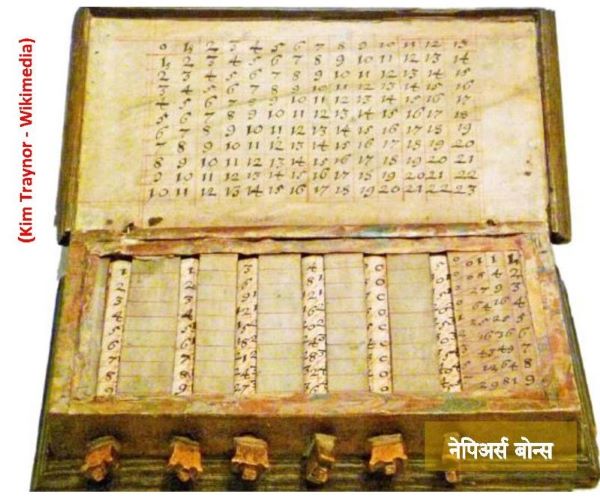 (Kim Traynor - Wikimedia)
0 1 2 3 4 5 6 7 8 9 10 11 12 13
1 2 3 4 5 6 7 8 9 10 11 12 13 14
2 3 4 5 6 7 8 9 10 11 12 13 14 15
3 4 5 6 7 8 9 10 11 12 13 14 15 16
4 5 6 7 8 9 10 11 12 13 14 15 16 17
5 6 7 8 9 10 11 12 13 14 15 16 17 18
6 7 8 9 10 11 12 13 14 15 16 17 18 19
7 8 9 10 11 12 13 14 15 16 17 18 19 20
8 9 10 11 12 13 14 15 16 17 18 19 20 21
9 10 11 12 13 14 15 16 17 18 19 20 21 22
10 11 12 13 14 15 16 17 18 19 20 21 22 23
1 1 3 4 0
2 2 6 8 0
3 3 9 0
4 4 0
5 5 0
6 6 0
7 7 0
8 8 0
9 9 0
नेपिअर्स बोन्स